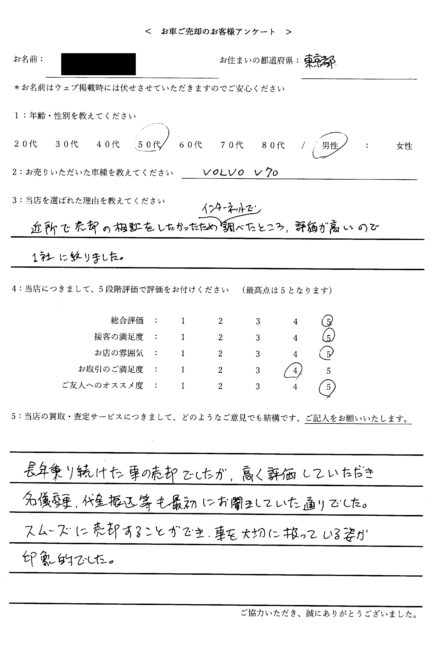 < お車ご売却のお客様アンケート >
お名前： お住まいの都道府県：東京都
*お名前はウェブ掲載時には伏せさせていただきますのでご安心ください
1：年齢・性別を教えてください
20代 30代 40代 50代 60代 70代 80代 / 男性 ： 女性
2：お売りいただいた車種を教えてください VOLVO V70
3：当店を選ばれた理由を教えてください
インターネットで
近所で売却の相談をしたかったため調べたところ、評価が高いので
1社に絞りました。
4：当店につきまして、5段階評価で評価をお付けください （最高点は5となります）
総合評価 ： 1 2 3 4 5
接客の満足度 ： 1 2 3 4 5
お店の雰囲気 ： 1 2 3 4 5
お取引のご満足度 ： 1 2 3 4 5
ご友人へのオススメ度 ： 1 2 3 4 5
5：当店の買取・査定サービスにつきまして、どのようなご意見でも結構です、ご記入をお願いいたします。
長年乗り続けた車の売却でしたが、高く評価していただき
名儀変更、代金振込等も最初にお聞きしていた通りでした。
スムーズに売却することができ、車を大切に扱っている姿が
印象的でした。
ご協力いただき、誠にありがとうございました。